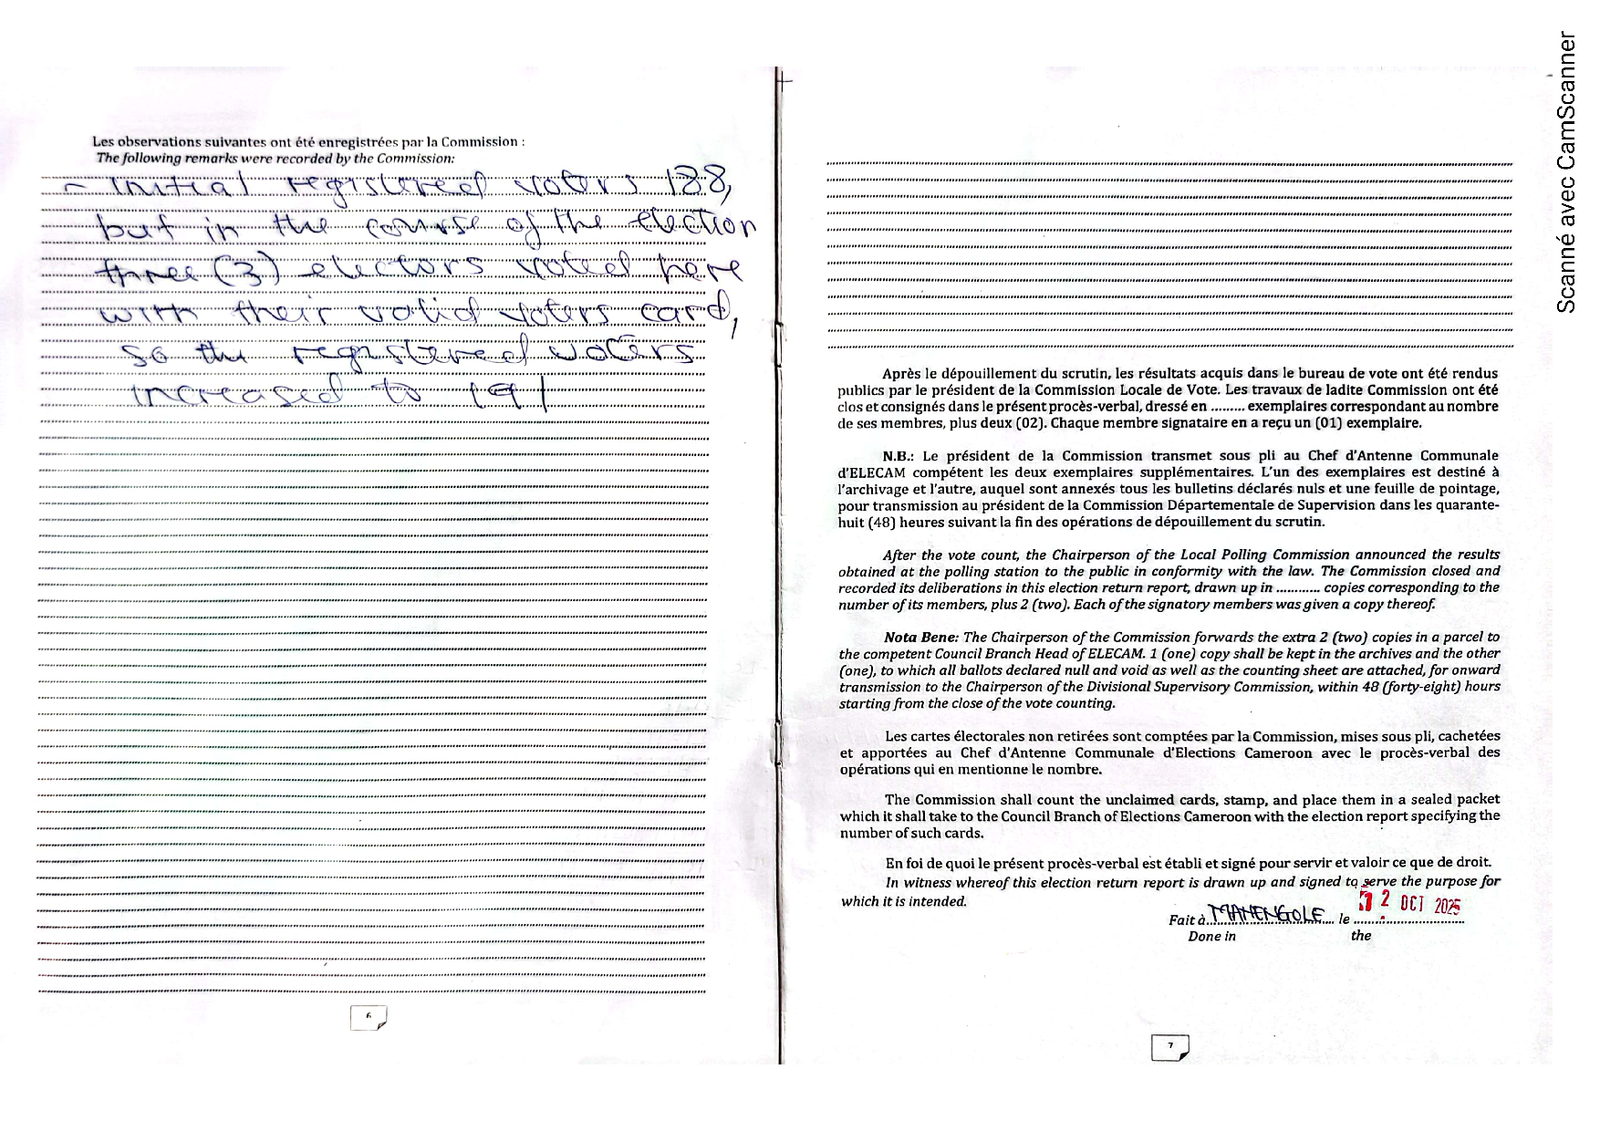 Les observations suivantes ont été enregistrées par la Commission :
The following remarks were recorded by the Commission:
- Initial registered voters 188,
but in the course of the election
three (3) electors voted here
with their valid voters card,
so the registered voters
increased to 191
6
Après le dépouillement du scrutin, les résultats acquis dans le bureau de vote ont été rendus
publics par le président de la Commission Locale de Vote. Les travaux de ladite Commission ont été
clos et consignés dans le présent procès-verbal, dressé en ......... exemplaires correspondant au nombre
de ses membres, plus deux (02). Chaque membre signataire en a reçu un (01) exemplaire.
N.B.: Le président de la Commission transmet sous pli au Chef d'Antenne Communale
d'ELECAM compétent les deux exemplaires supplémentaires. L'un des exemplaires est destiné à
l'archivage et l'autre, auquel sont annexés tous les bulletins déclarés nuls et une feuille de pointage,
pour transmission au président de la Commission Départementale de Supervision dans les quarante-
huit (48) heures suivant la fin des opérations de dépouillement du scrutin.
After the vote count, the Chairperson of the Local Polling Commission announced the results
obtained at the polling station to the public in conformity with the law. The Commission closed and
recorded its deliberations in this election return report, drawn up in ............ copies corresponding to the
number of its members, plus 2 (two). Each of the signatory members was given a copy thereof.
Nota Bene: The Chairperson of the Commission forwards the extra 2 (two) copies in a parcel to
the competent Council Branch Head of ELECAM. 1 (one) copy shall be kept in the archives and the other
(one), to which all ballots declared null and void as well as the counting sheet are attached, for onward
transmission to the Chairperson of the Divisional Supervisory Commission, within 48 (forty-eight) hours
starting from the close of the vote counting.
Les cartes électorales non retirées sont comptées par la Commission, mises sous pli, cachetées
et apportées au Chef d'Antenne Communale d'Elections Cameroon avec le procès-verbal des
opérations qui en mentionne le nombre.
The Commission shall count the unclaimed cards, stamp, and place them in a sealed packet
which it shall take to the Council Branch of Elections Cameroon with the election report specifying the
number of such cards.
En foi de quoi le présent procès-verbal est établi et signé pour servir et valoir ce que de droit.
In witness whereof this election return report is drawn up and signed to serve the purpose for
which it is intended.
Fait à MAHENGOLE le 12 OCT 2025
Done in the
7
Scanné avec CamScanner